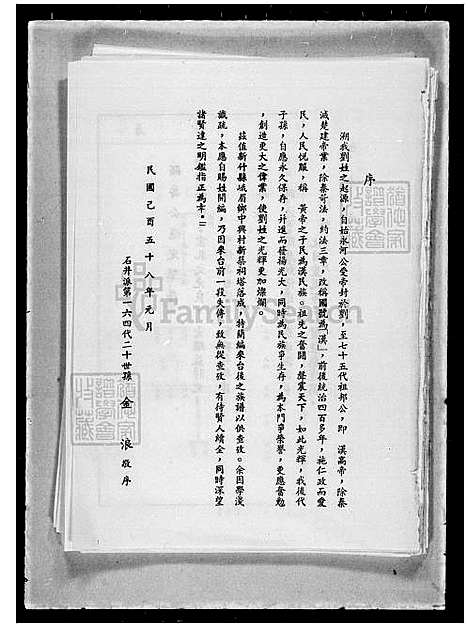 序
溯我劉姓之起源，自始永河公受帝封於劉，至七十五代祖邦公，即　漢高帝，除秦
滅楚建帝業，除秦苛法，約法三章，改稱國號為「漢」，前後統治四百多年，施仁政而愛
民，人民悅服，稱　黃帝之子民為漢民族。祖先之奮鬪，聲震天下，如此光輝，我後代
子孫，自應永久保存，並進而發揚光大，同時為民族爭生存，為本門爭榮譽，更應奮勉
，創造更大之偉業，使劉姓之光輝更加燦爛。
茲值新竹縣峨眉鄉中興村新築祠塔落成，特簡編來台後之族譜以供查攷。余因學淺
識疏，本應自賜姓開編，乃因來台前一段失傳，致無從查攷，有待賢人續全，同時深望
諸賢達之明鑑指正為幸。
民國己酉五十八年元月
石井派第一六四代二十世孫　金　浪　敬序
FamilySearch